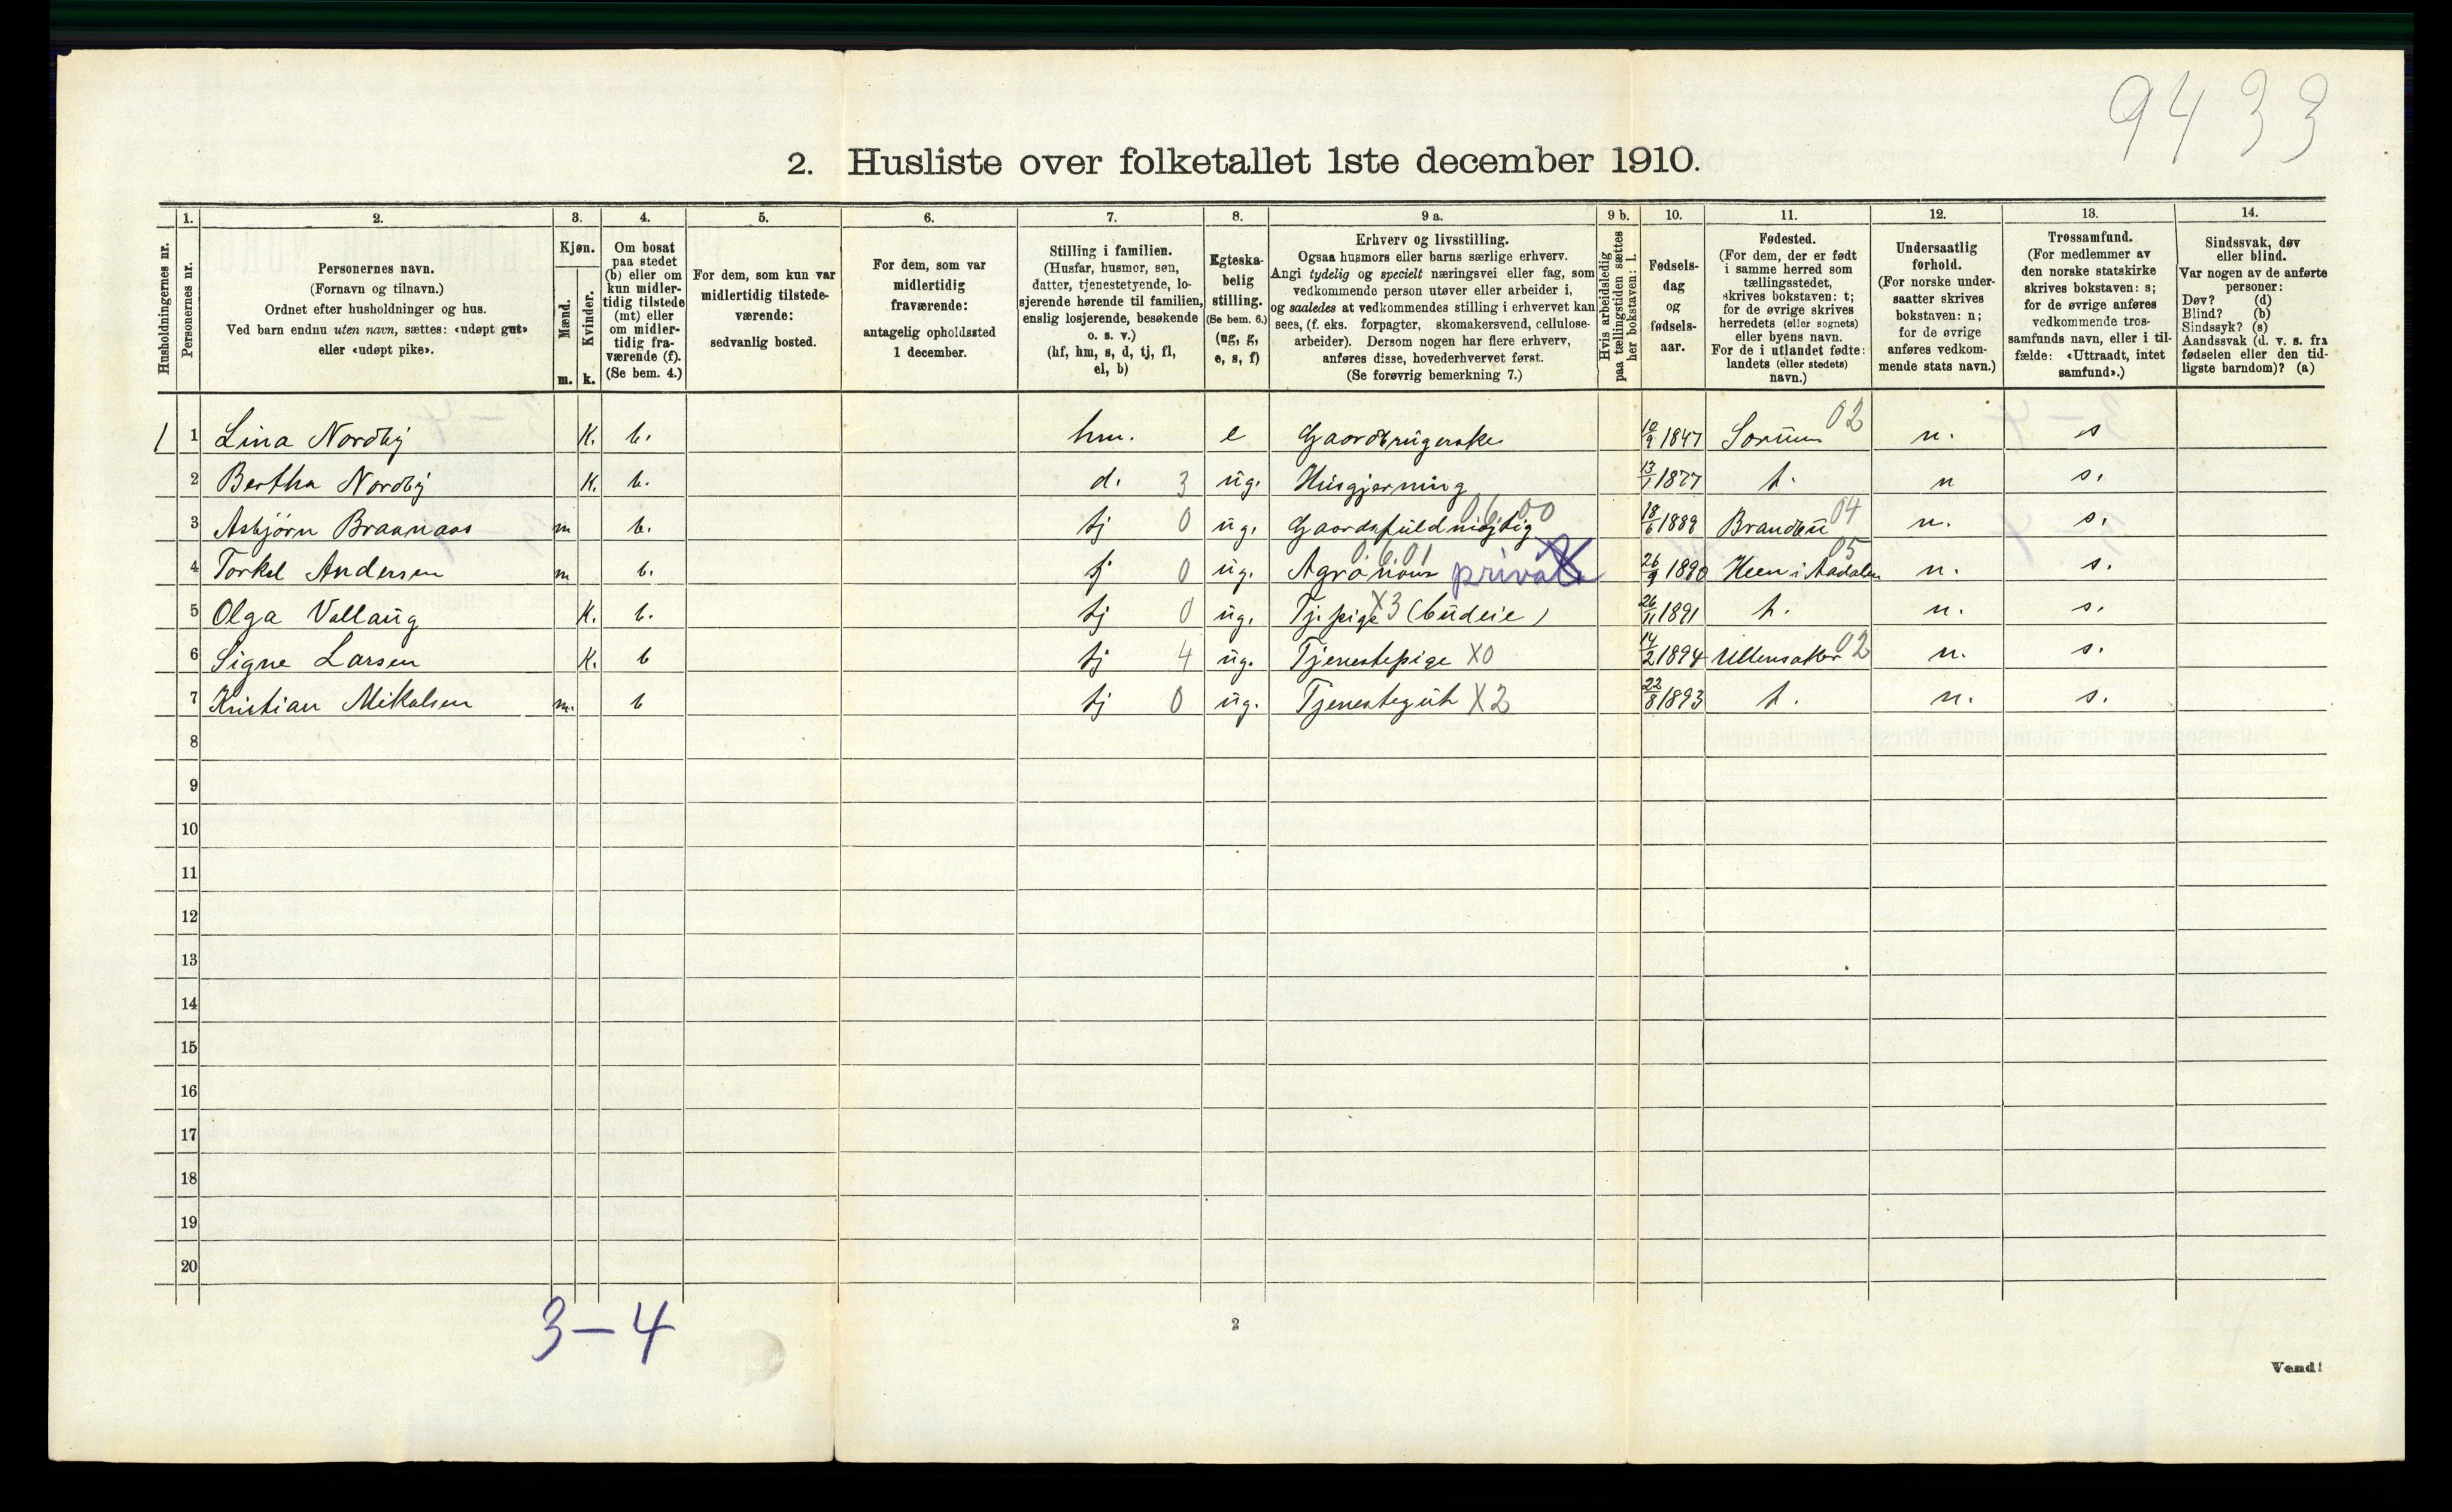 9433
2. Husliste over folketallet 1ste december 1910.
Husholdningernes nr.
1.
Personernes nr.
2.
Personernes navn.
(Fornavn og tilnavn.)
Ordnet efter husholdninger og hus.
Ved barn endnu uten navn, sættes: «udøpt gut»
eller «udøpt pike».
3.
Kjøn.
Mænd.
Kvinder.
m. k.
4.
Om bosat
paa stedet
(b) eller om
kun midler-
tidig tilstede
(mt) eller
om midler-
tidig fra-
værende (f).
(Se bem. 4.)
5.
For dem, som kun var
midlertidig tilstede-
værende:
sedvanlig bosted.
6.
For dem, som var
midlertidig
fraværende:
antagelig opholdssted
1 december.
7.
Stilling i familien.
(Husfar, husmor, søn,
datter, tjenestetyende, lo-
sjerende hørende til familien,
enslig losjerende, besøkende
o. s. v.)
(hf, hm, s, d, tj, fl,
el, b)
8.
Egteska-
belig
stilling.
(Se bem. 6.)
(ug, g,
e, s, f)
9 a.
Erhverv og livsstilling.
Ogsaa husmors eller barns særlige erhverv.
Angi tydelig og specielt næringsvei eller fag, som
vedkommende person utøver eller arbeider i,
og saaledes at vedkommendes stilling i erhvervet kan
sees, (f. eks. forpagter, skomakersvend, cellulose-
arbeider). Dersom nogen har flere erhverv,
anføres disse, hovederhvervet først.
(Se forøvrig bemerkning 7.)
9 b.
Hvis arbeidsledig
paa tællingstiden sættes
her bokstaven: l.
10.
Fødsels-
dag
og
fødsels-
aar.
11.
Fødested.
(For dem, der er født
i samme herred som
tællingsstedet,
skrives bokstaven: t;
for de øvrige skrives
herredets (eller sognets)
eller byens navn.
For de i utlandet fødte:
landets (eller stedets)
navn.)
12.
Undersaatlig
forhold.
(For norske under-
saatter skrives
bokstaven: n;
for de øvrige
anføres vedkom-
mende stats navn.)
13.
Trossamfund.
(For medlemmer av
den norske statskirke
skrives bokstaven: s;
for de øvrige anføres
vedkommende tros-
samfunds navn, eller i til-
fælde: «Uttraadt, intet
samfund».)
14.
Sindssvak, døv
eller blind.
Var nogen av de anførte
personer:
Døv? (d)
Blind? (b)
Sindssyk? (s)
Aandssvak (d. v. s. fra
fødselen eller den tid-
ligste barndom)? (a)
1 1 Lina Nordby K. b. hm. e Gaardbrugerske 10/9 1847 Sørum 02 n. s
2 Bertha Nordby K. b. d. 3 ug. Husgjerning 13/1 1877 t. n s.
3 Asbjørn Braanaas m b. tj 0 ug. Gaardsfuldmægtig 0600 18/6 1889 Brandbu 04 n. s.
4 Torkel Andersen m b. tj 0 ug. Agronom 0.6.01 privat 26/9 1890 Heen i Aadalen 05 n. s.
5 Olga Vallaug K. b. tj 0 ug. Tj. pige X3 (budeie) 26/11 1891 t. n. s.
6 Signe Larsen K. b tj 4 ug. Tjenestepige X0 14/2 1894 Ullensaker 02 n. s.
7 Kristian Mikalsen m. b tj 0 ug. Tjenestegut X2 22/8 1893 t. n. s.
8
9
10
11
12
13
14
15
16
17
18
19
20
3-4
2
Vend!